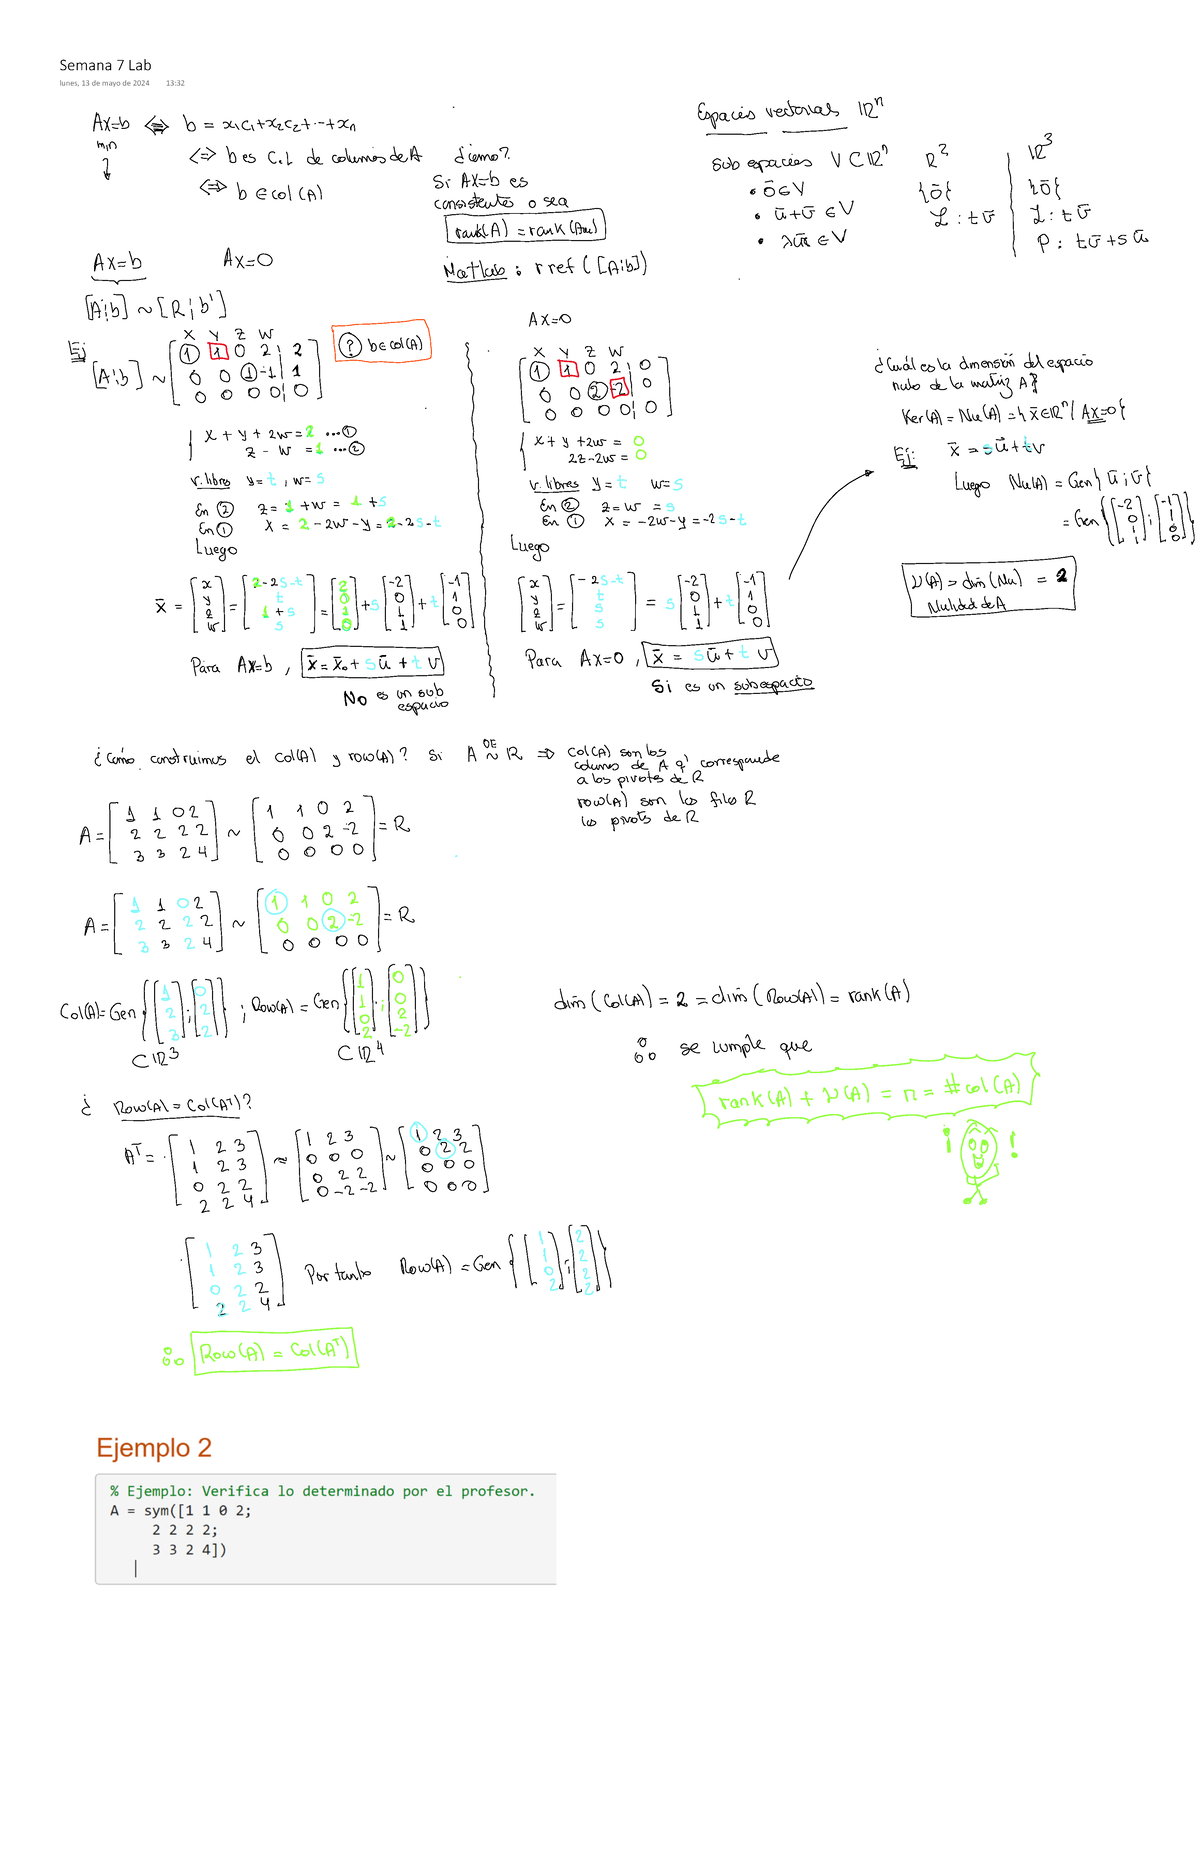 Semana 7 Lab
lunes, 13 de mayo de 2024    13:32
Ax=b ⟺ b = x₁c₁+x₂c₂+...+xn
m,n
⟺ b es C.L de columnas de A
⟺ b ∈ col(A)
¿como?
Si Ax=b es
consistente o sea
rank(A) = rank(Aum)
Matlab: rref([A¦b])
Espacios vectorials ℝⁿ
Sub espacios V ⊂ ℝⁿ    ℝ²    ℝ³
• ō ∈ V    {ō}    {ō}
• ū+v̄ ∈ V    L: tv̄    L: tv̄
• λū ∈ V    P: tv̄+sū
Ax=b    Ax=0
[A¦b] ~ [R¦b']
Ej
x y z w
[A¦b] ~
1 1 0 2 ¦ 2
0 0 1 -1 ¦ 1
0 0 0 0 ¦ 0
? b∈col(A)
x + y + 2w = 2 ...①
z - w = 1 ...②
v. libres y=t, w=s
En ② z = 1 + w = 1 + s
En ① x = 2-2w-y = 2-2s-t
Luego
x̄ = [x y z w] = [2-2s-t t 1+s s] = [2 0 1 0] + s[-2 0 1 1] + t[-1 1 0 0]
Para Ax=b, x̄ = x̄₀ + sū + tv
No es un sub
espacio
Ax=0
x y z w
1 1 0 2 ¦ 0
0 0 2 -2 ¦ 0
0 0 0 0 ¦ 0
x + y + 2w = 0
2z - 2w = 0
v. libres y=t w=s
En ② z=w = s
En ① x = -2w-y = -2s-t
Luego
[x y z w] = [-2s-t t s s] = s[-2 0 1 1] + t[-1 1 0 0]
Para Ax=0, x̄ = sū + tv
Si es un subespacio
¿Cuál es la dimensión del espacio
nulo de la matriz A?
Ker(A) = Nu(A) = {x̄∈ℝⁿ / Ax=0}
Ej: x̄ = sū + tv
Luego Nu(A) = Gen{ū; v̄}
= Gen{[-2 0 1 1]; [-1 1 0 0]}
ν(A) = dim(Nu) = 2
Nulidad de A
¿Cómo construimos el col(A) y row(A)? Si A ~ R ⇒ col(A) son las
OE
columns de A q' corresponde
a los pivotes de R
row(A) son las filas R
los pivots de R
A =
1 1 0 2
2 2 2 2
3 3 2 4
~
1 1 0 2
0 0 2 -2
0 0 0 0
= R
A =
1 1 0 2
2 2 2 2
3 3 2 4
~
1 1 0 2
0 0 2 -2
0 0 0 0
= R
Col(A) = Gen{[1 2 3]; [0 2 2]}; Row(A) = Gen{[1 1 0 2]; [0 0 2 -2]}
⊂ ℝ³    ⊂ ℝ⁴
dim(Col(A)) = 2 = dim(Row(A)) = rank(A)
∴ se cumple que
rank(A) + ν(A) = n = #col(A)
¡ !
¿ Row(A) = Col(Aᵀ)?
Aᵀ =
1 2 3
1 2 3
0 2 2
2 2 4
~
1 2 3
0 0 0
0 2 2
0 -2 -2
~
1 2 3
0 2 2
0 0 0
0 0 0
1 2 3
1 2 3
0 2 2
2 2 4
Por tanto Row(A) = Gen{[1 1 0 2]; [2 2 2 2]}
∴ Row(A) = Col(Aᵀ)
Ejemplo 2
% Ejemplo: Verifica lo determinado por el profesor.
A = sym([1 1 0 2;
2 2 2 2;
3 3 2 4])